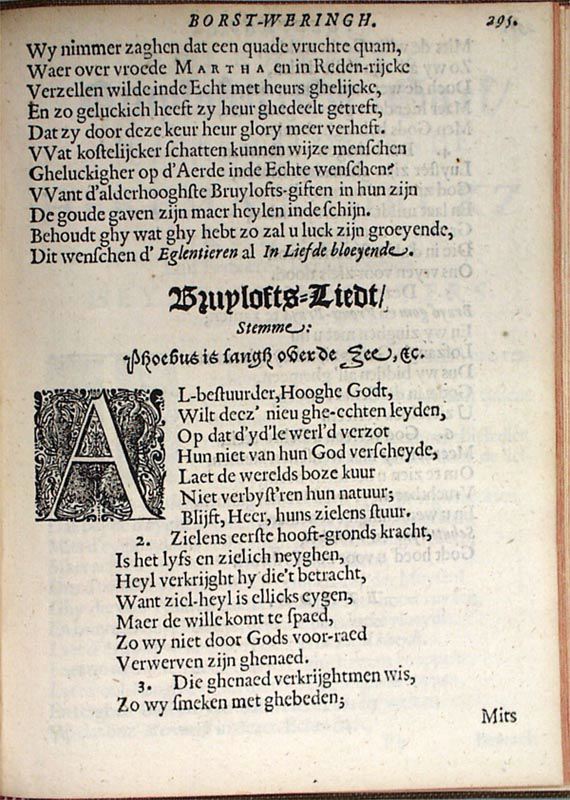 BORST-WERINGH. 295.
Wy nimmer zaghen dat een quade vruchte quam,
Waer over vroede MARTHA en in Reden-rijcke
Verzellen wilde inde Echt met heurs ghelijcke,
En zo geluckich heeft zy heur ghedeelt getreft,
Dat zy door deze keur heur glory meer verheft.
VVat kostelijcker schatten kunnen wijze menschen
Gheluckigher op d'Aerde inde Echte wenschen?
VVant d'alderhooghste Bruylofts-giften in hun zijn
De goude gaven zijn maer heylen inde schijn.
Behoudt ghy wat ghy hebt zo zal u luck zijn groeyende,
Dit wenschen d' Eglentieren al In Liefde bloeyende.
Bruylofts-Liedt/
Stemme:
Phoebus is langh over de Zee, &c.
AL-bestuurder, Hooghe Godt,
Wilt deez' nieu ghe-echten leyden,
Op dat d'yd'le werl'd verzot
Hun niet van hun God verscheyde,
Laet de werelds boze kuur
Niet verbyst'ren hun natuur;
Blijft, Heer, huns zielens stuur.
2. Zielens eerste hooft-gronds kracht,
Is het lyfs en zielich neyghen,
Heyl verkrijght hy die't betracht,
Want ziel-heyl is ellicks eygen,
Maer de wille komt te spaed,
Zo wy niet door Gods voor-raed
Verwerven zijn ghenaed.
3. Die ghenaed verkrijghtmen wis,
Zo wy smeken met ghebeden;
Mits